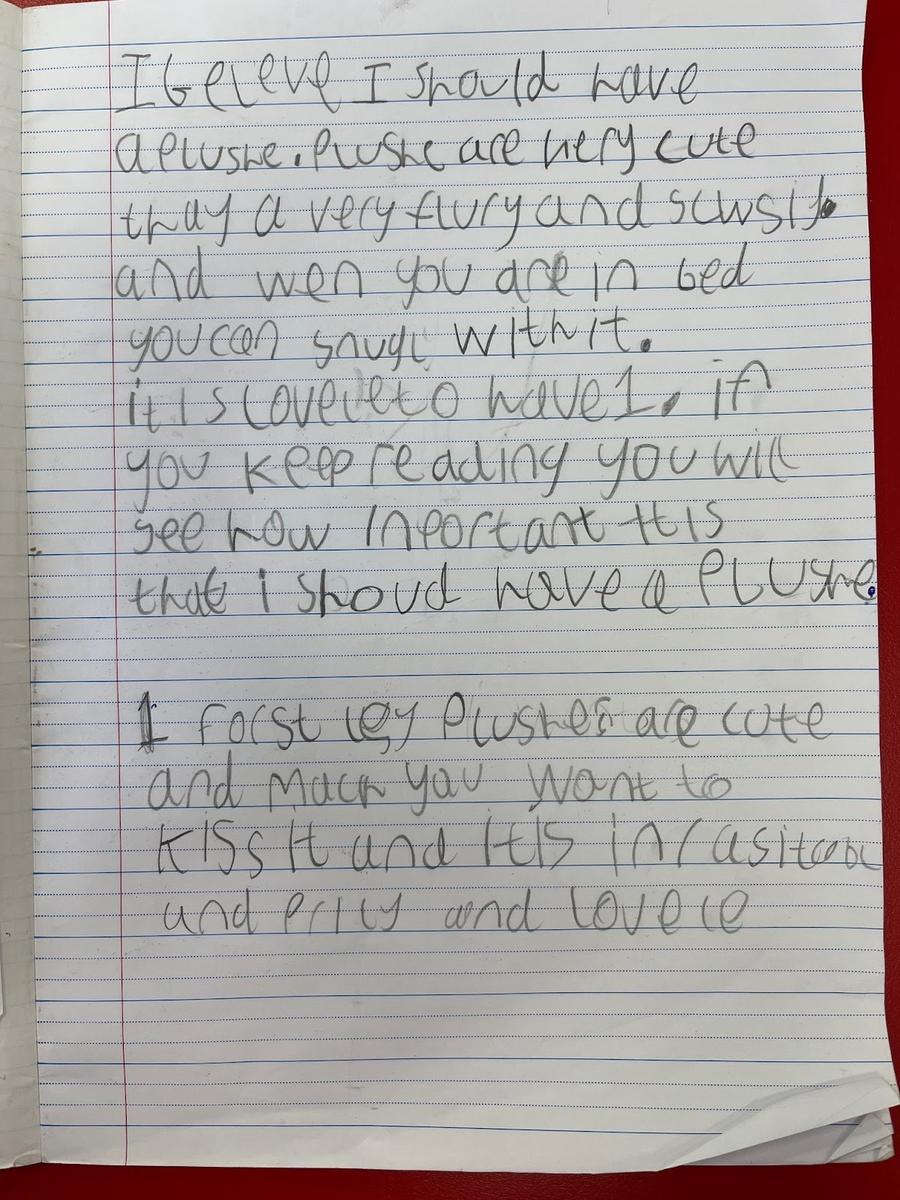 I beleve I should have
a plushe. Plushe are very cute
thay a very flury and scwsiy.
and wen you are in bed
you can snugl with it.
it is lovele to have 1. if
you keep reading you will
see how inportant it is
that i shoud have a Plushe.
1 Forstley Plushes are cute
and mack you want to
kiss it and it is
and prity and lovele